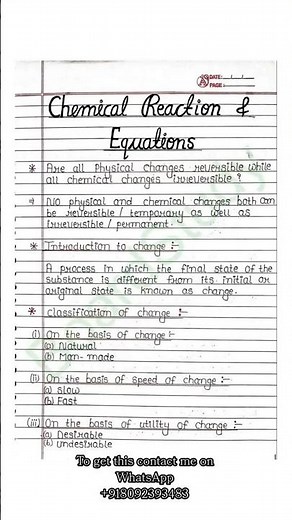 DATE: / /
PAGE:
Chemical Reaction &
Equations
* Are all Physical changes reversible while
all chemical changes irreversible ?
⇒ No physical and chemical changes both can
be reversible / temporary as well as
irreversible / permanent.
* Introduction to change :-
A process in which the final state of the
substance is different from its initial or
original state is known as change.
* Classification of change :-
(i) On the basis of change :-
(a) Natural
(b) Man-made
(ii) On the basis of speed of change :-
(a) Slow
(b) Fast
(iii) On the basis of utility of change :-
(a) Desirable
(b) undesirable
To get this contact me on
WhatsApp
+918092393483